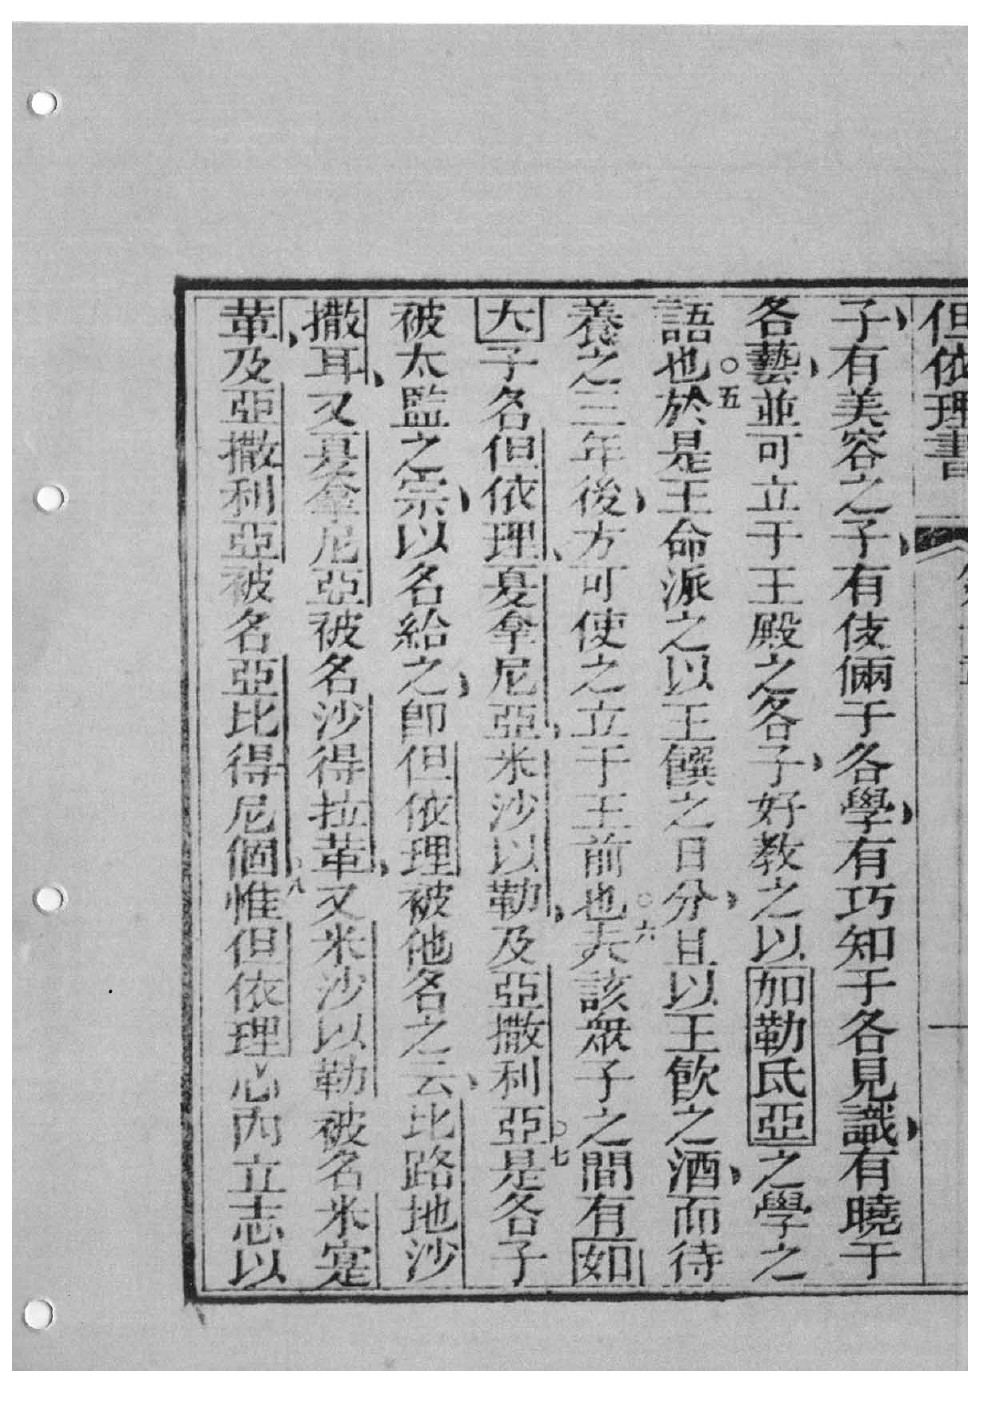 但依理書
子有美容之子有伎倆于各學有巧知于各見識有曉于
各藝並可立于王殿之各子好教之以加勒氐亞之學之
語也○五於是王命派之以王饌之日分且以王飲之酒而待
養之三年後方可使之立于王前也○六夫該衆子之間有如
大子名但依理夏拿尼亞米沙以勒及亞撒利亞○七是各子
被太監之宗以名給之卽但依理被他名之云比路地沙
撒耳又夏拿尼亞被名沙得拉革又米沙以勒被名米寔
革及亞撒利亞被名亞比得尼個○八惟但依理心內立志以